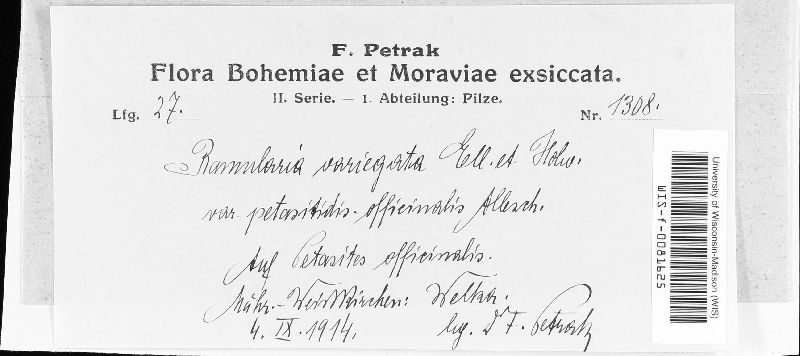 F. Petrak
Flora Bohemiae et Moraviae exsiccata.
II. Serie. — 1. Abteilung: Pilze.
Lfg. 27. Nr. 1308.
Ramularia variegata Ell. et Holw.
var petasitidis-officinalis Allesch.
Auf Petasites officinalis.
Mähr.-Weisskirchen: Welka.
4. IX. 1914. leg. Dr F. Petrak
University of Wisconsin-Madison (WIS)
WIS-f-0081625